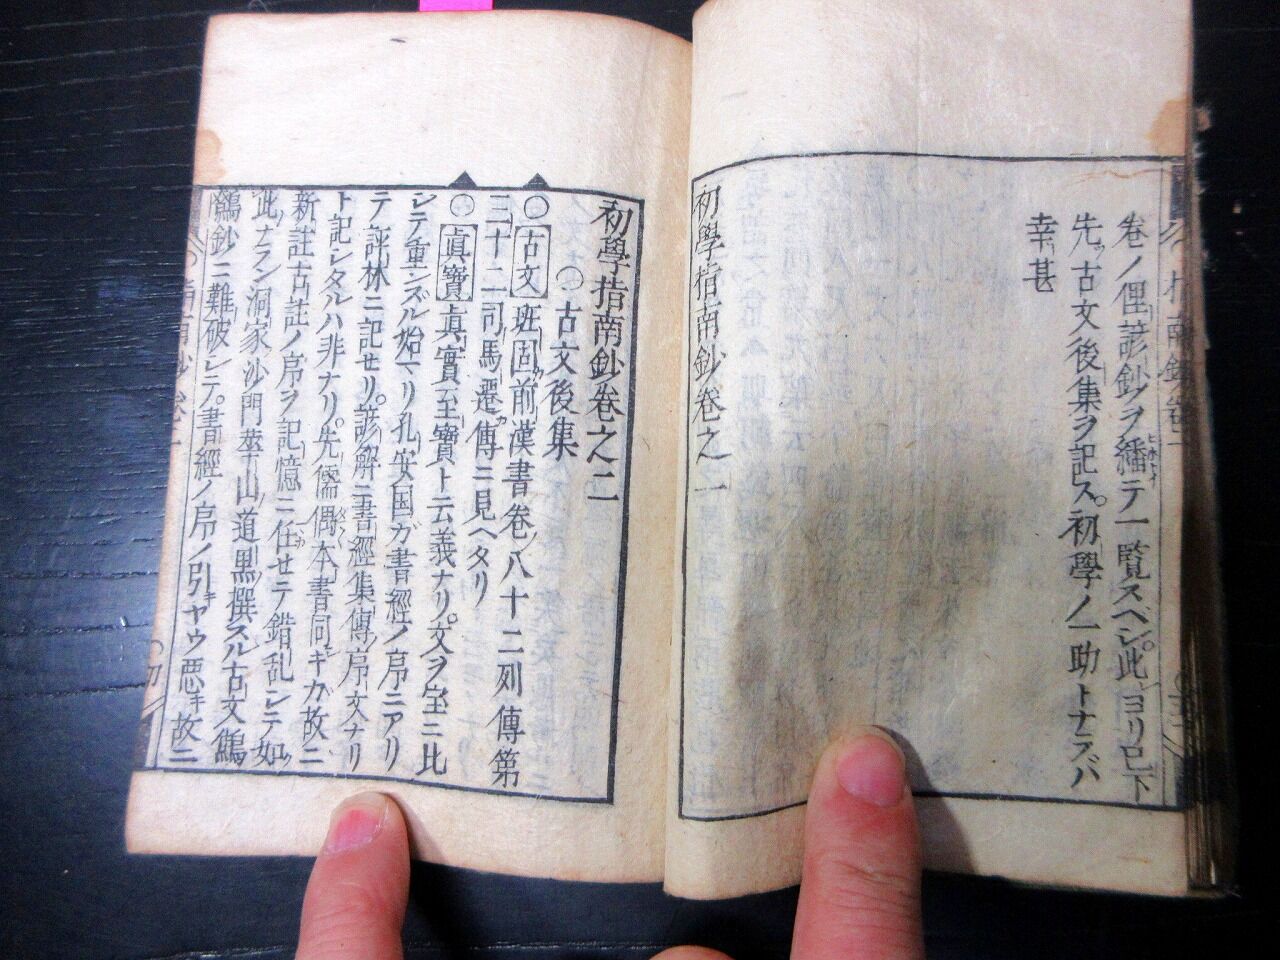 卷ノ俚諺鈔ヲ繙テ一覧スベシ。此ヨリ已下
先ッ古文後集ヲ記ス。初學ノ一助トナラバ
幸甚
初學指南鈔卷之一
初學指南鈔卷之二
古文後集
〇古文班固前漢書卷八十二列傳第
三十二司馬遷傳ニ見ヘタリ
〇眞寶眞實至寶ト云義ナリ。文ヲ宝ニ比
シテ重シズル始ハリ孔安国ガ書經ノ序ニアリ
テ評林ニ記セリ。諺解ニ書經集傳序文ナリ
ト記シタルハ非ナリ。先儒偶本書同キガ故ニ
新註古註ノ序ヲ記憶ニ任せテ錯乱シテ如
此ナラン洞家沙門華山道黒撰スル古文鷦
鷯鈔ニ難破シテ。書經ノ序ノ引キヤウ悪キ故ニ